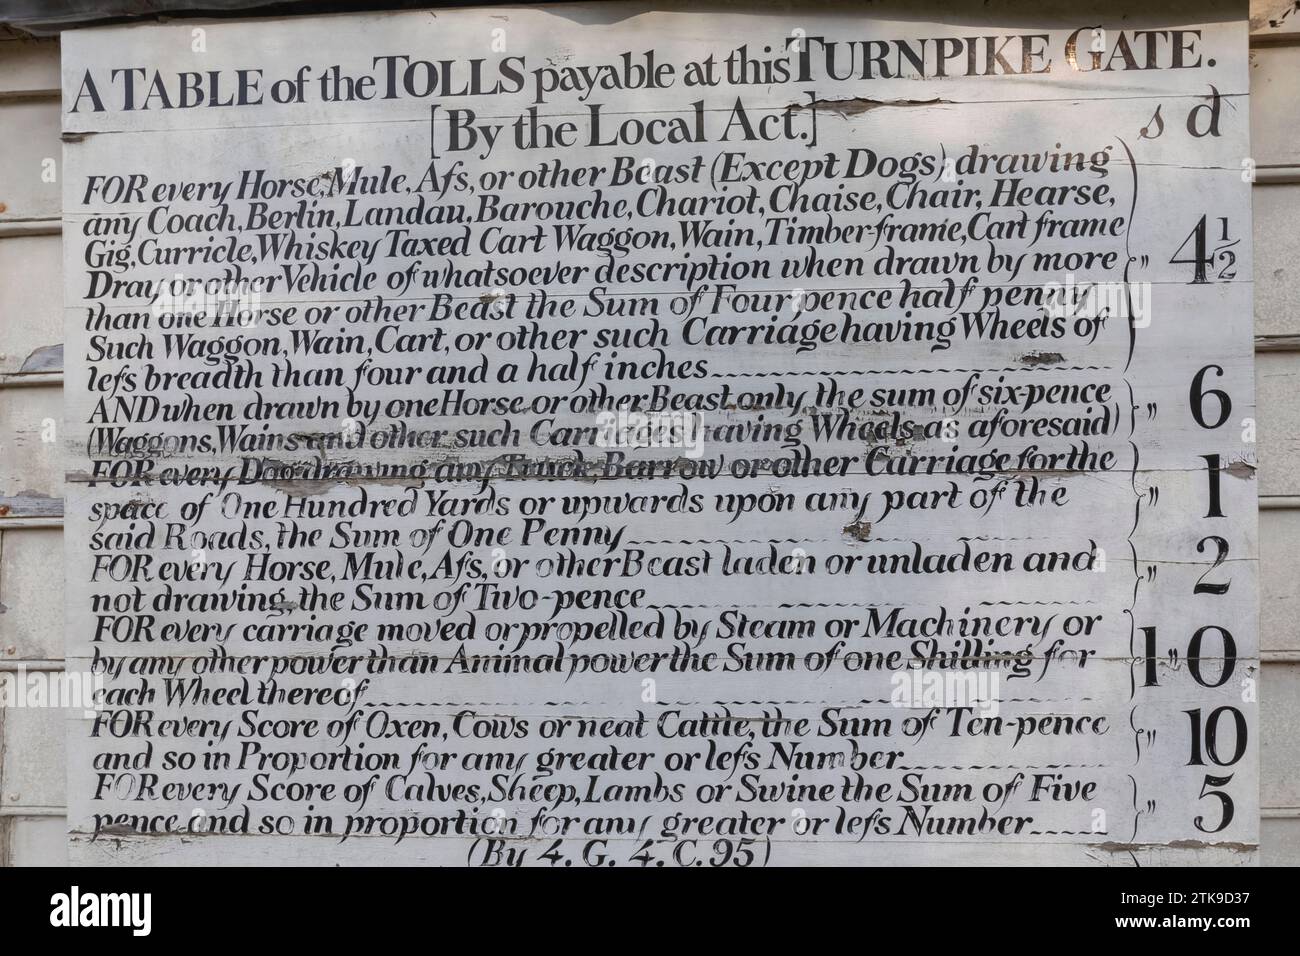 A TABLE of the TOLLS payable at this TURNPIKE GATE.
[By the Local Act.]
s d
FOR every Horse, Mule, Aſs, or other Beast (Except Dogs) drawing
any Coach, Berlin, Landau, Barouche, Chariot, Chaise, Chair, Hearse,
Gig, Curricle, Whiskey Taxed Cart Waggon, Wain, Timber-frame, Cart frame
Dray or other Vehicle of whatsoever description when drawn by more
than one Horse or other Beast the Sum of Four pence half penny
Such Waggon, Wain, Cart, or other such Carriage having Wheels of
leſs breadth than four and a half inches
" 4 1/2
AND when drawn by one Horse or other Beast only the sum of six-pence
(Waggons, Wains and other such Carriages having Wheels as aforesaid)
" 6
FOR every Dog drawing any Truck, Barrow or other Carriage for the
space of One Hundred Yards or upwards upon any part of the
said Roads, the Sum of One Penny
" 1
FOR every Horse, Mule, Aſs, or other Beast laden or unladen and
not drawing, the Sum of Two-pence
" 2
FOR every carriage moved or propelled by Steam or Machinery or
by any other power than Animal power the Sum of one Shilling for
each Wheel thereof
1 " 0
FOR every Score of Oxen, Cows or neat Cattle, the Sum of Ten-pence
and so in Proportion for any greater or leſs Number
" 10
FOR every Score of Calves, Sheep, Lambs or Swine the Sum of Five
pence and so in proportion for any greater or leſs Number
" 5
(By 4. G. 4. C. 95)
alamy
Image ID: 2TK9D37
www.alamy.com